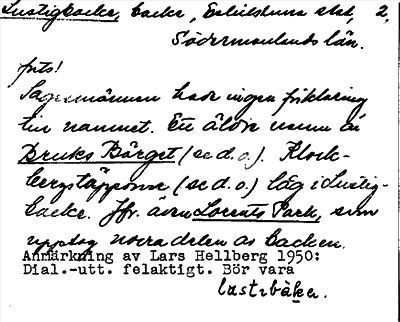 Lustigbacke, backe, Eskilstuna stad, 2,
Södermanlands län.
forts!
Sagesmännen hade ingen förklaring
till namnet. Ett äldre namn är
Bruks Bärget (se d. o.). Klock-
bergstäpporna (se d. o.) låg i Lustig-
backe. Jfr. även Lorents Park, som
upptog norra delen av backen.
Anmärkning av Lars Hellberg 1950:
Dial.-utt. felaktigt. Bör vara